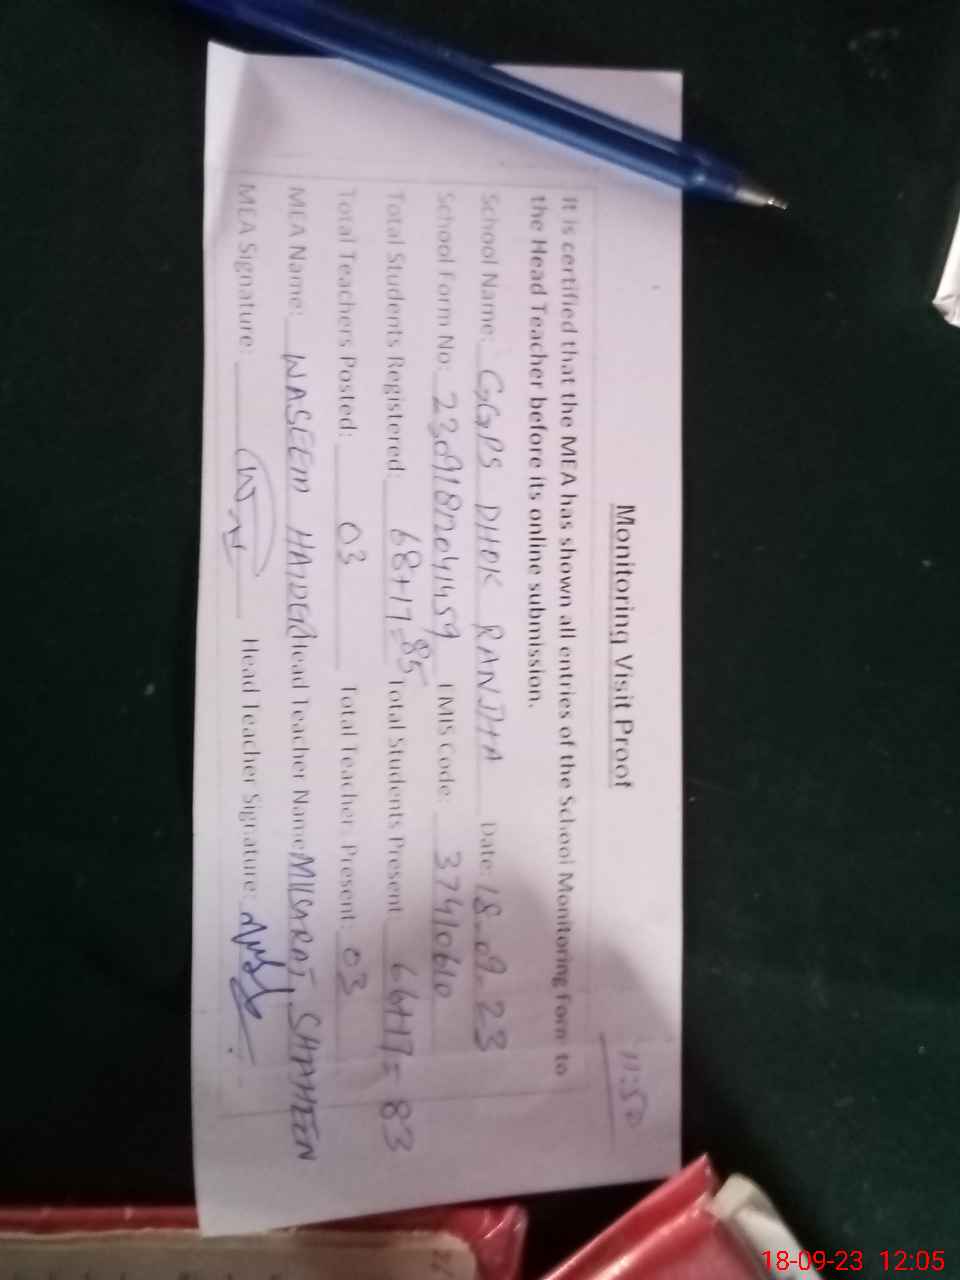 Monitoring Visit Proof
11:50
It is certified that the MEA has shown all entries of the School Monitoring Form to
the Head Teacher before its online submission.
School Name: GGPS DHOK RANJHA Date: 18-09-23
School Form No: 2309182041459 EMIS Code: 37410610
Total Students Registered: 68+17=85 Total Students Present 66+17=83
Total Teachers Posted: 03 Total Teacher Present: 03
MEA Name: WASEEM HAIDER Head Teacher Name: MUSARAT SHAHEEN
MEA Signature: Head Teacher Signature:
18-09-23 12:05